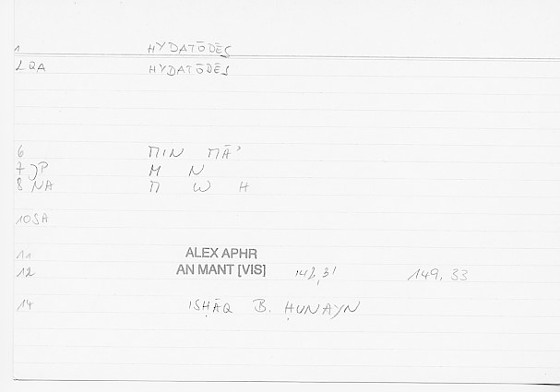 1 HYDATŌDĒS
2QA HYDATŌDĒS
6 MIN MĀʾ
7 JP M N
8 NA M W H
10SA
11 ALEX APHR
12 AN MANT [VIS] 148,31 149,33
14 ISḤĀQ B. ḤUNAYN